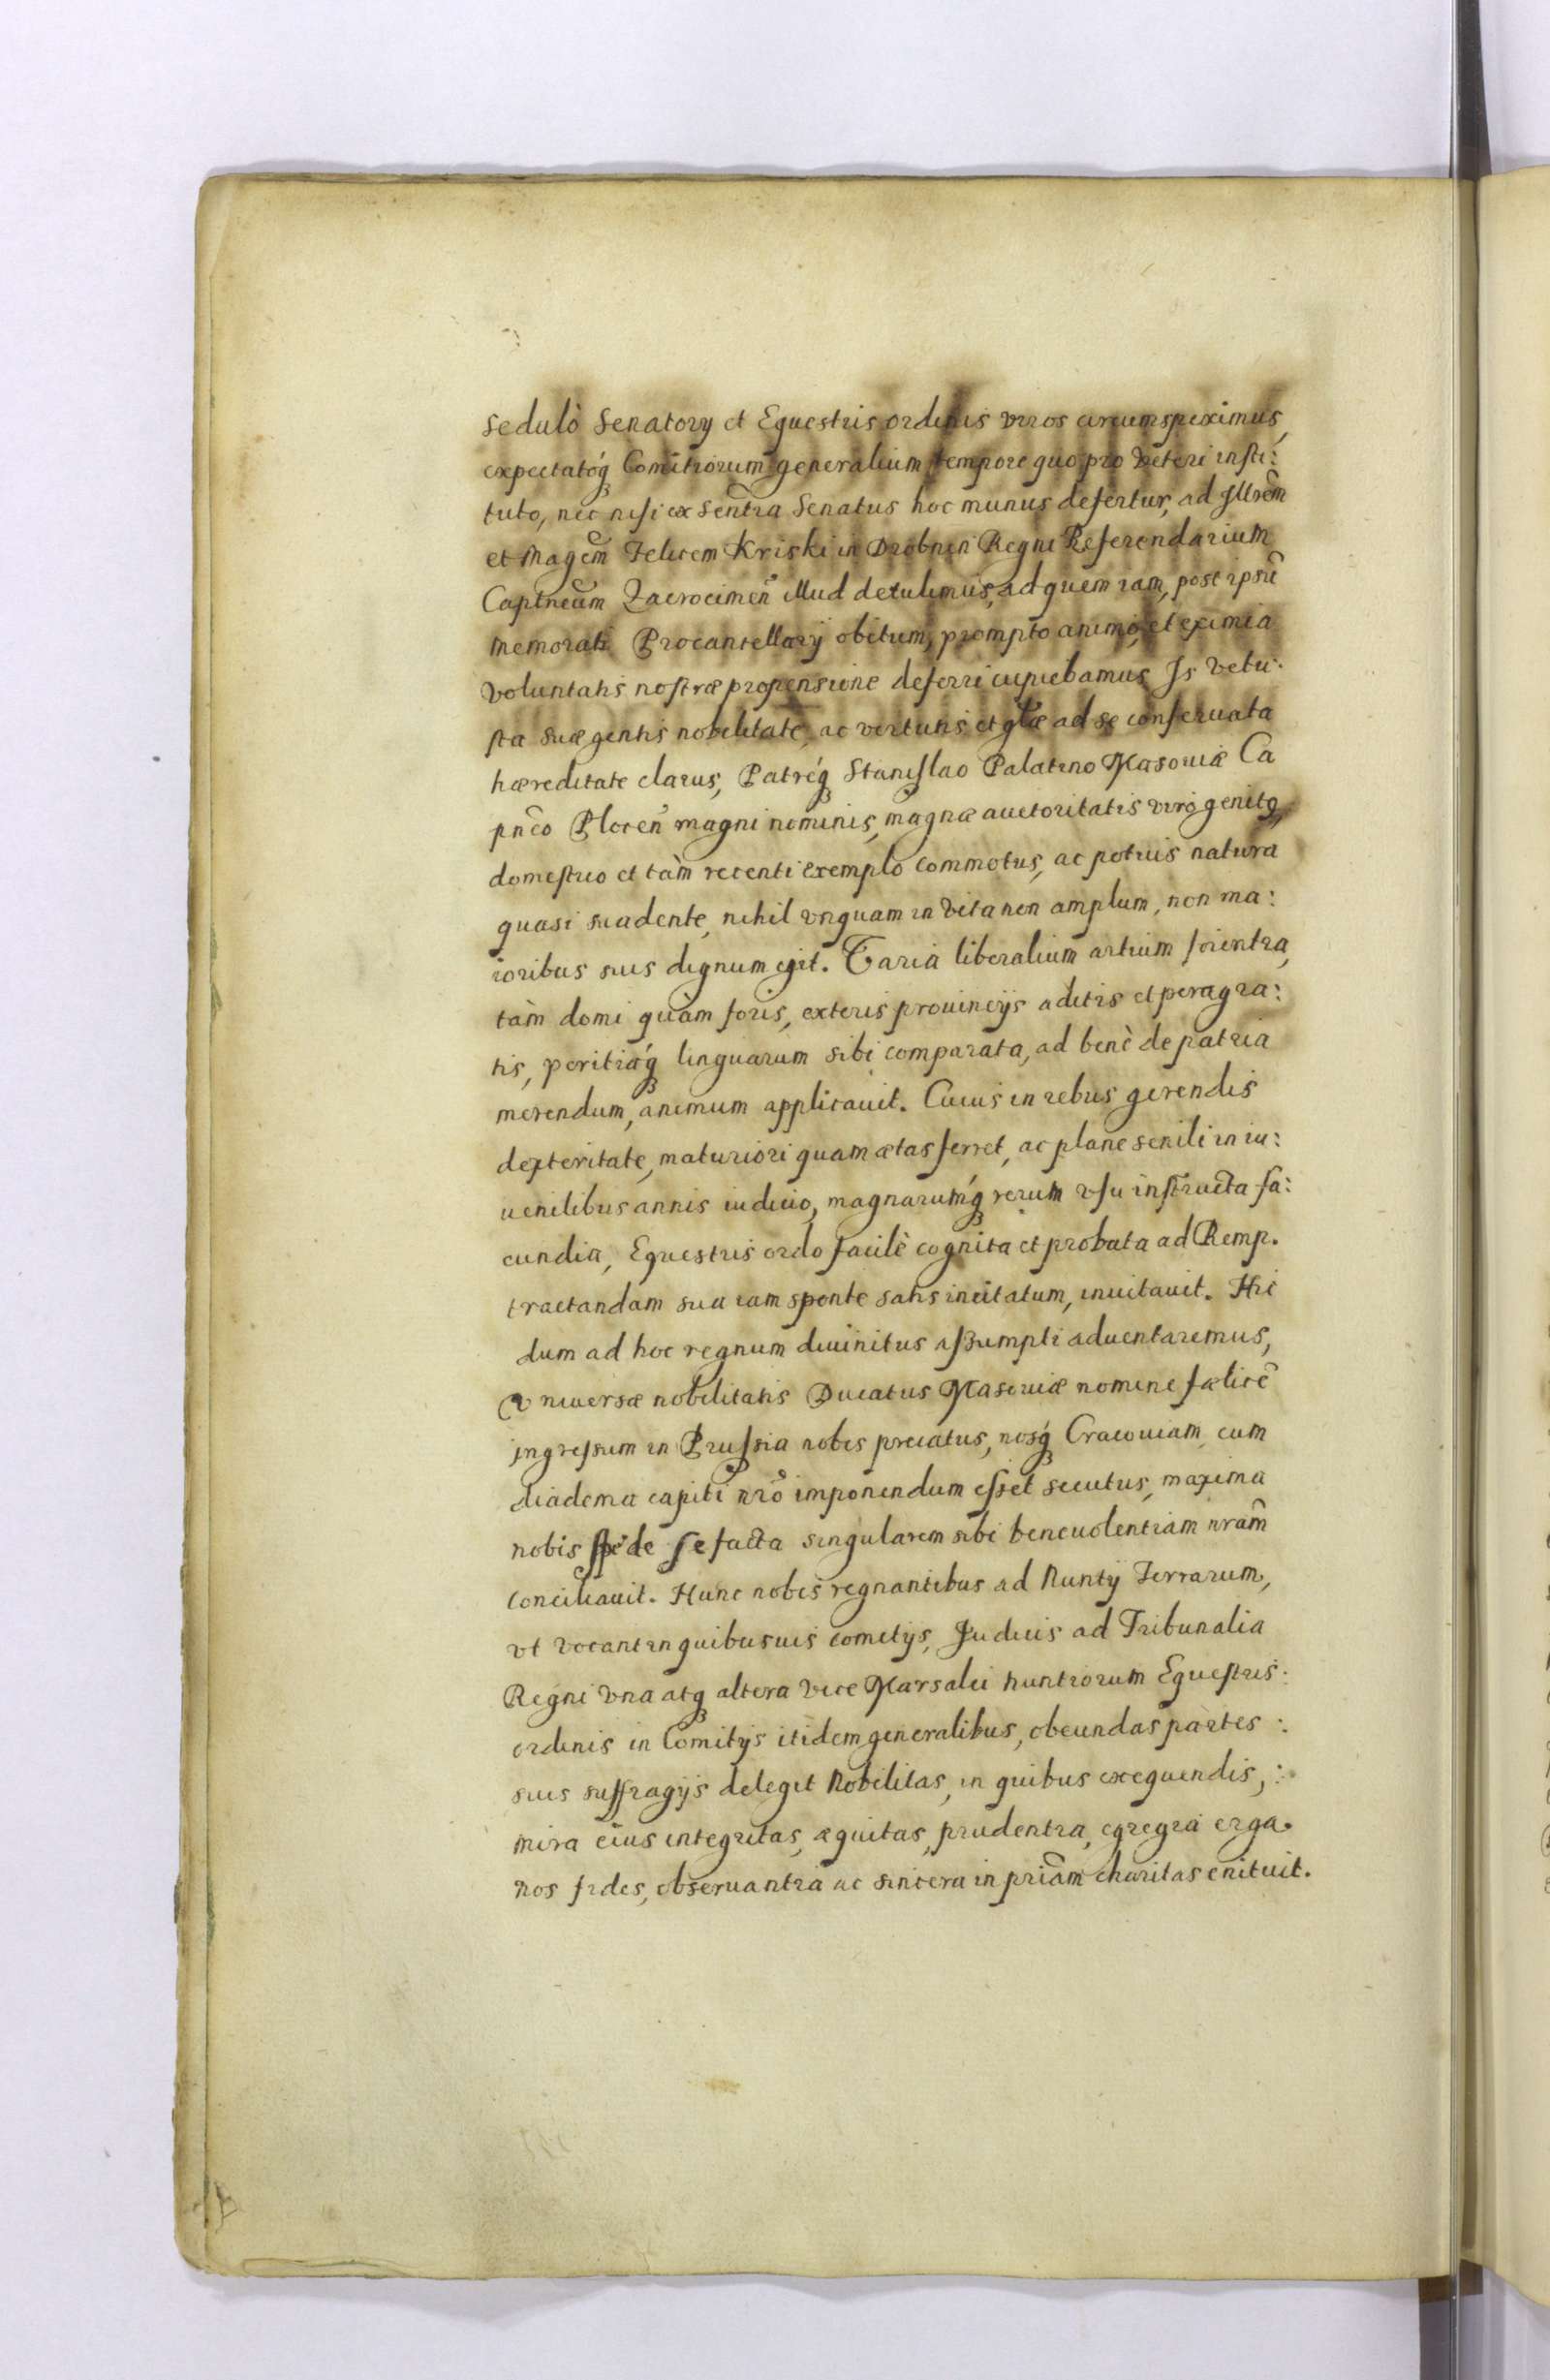 sedulò Senatorŋ et Equestris ordinis viros circumspeximus,
expectatóq́ Comitiorum generalium tempore quo pro veteri insti:
tuto, nec nisi ex sent̃ia Senatus hoc munus defertur, ad Illrẽm
et Magcũm Felicem Kriski in Drobnin Regni Referendarium
Captneũm Zacrocimeñ illud detulimus, ad quem iam, post ipsiũ
memorati Procancellarij obitum, prompto animo, et eximia
voluntatis nostræ propensione deferri cupiebamus. Is vetu:
sta suæ gentis nobilitate, ac virtutis et gl̃æ ad se conseruata
hæreditate clarus, Patréq́ Stanislao Palatino Masouiæ Ca
pnẽo Ploceñ magni nominis, magnæ auctoritatis viro genitq,
domestico et tàm recenti exemplo commotus, ac potuis natura
quasi suadente, nihil vnquam in vita non amplum, non ma:
ioribus suis dignum egit. Varia liberalium artium scientia,
tàm domi quàm foris, exteris prouincijs aditis et peragra:
tis, peritiáq́ linguarum sibi comparata, ad benè de patria
merendum, animum applicauit. Cuius in rebus gerendis
dexteritate, maturiori quam ætas ferret, ac plane senili in iu:
uenilibus annis iudicio, magnarumq́ rerum vsu instructa fa:
cundia, Equestris ordo facilè cognita et probata ad Remp.
tractandam sua iam sponte satis incitatum, inuitauit. Hic
dum ad hoc regnum diuinitus assumpti aduentaremus,
Vniuersæ nobilitatis Ducatus Masouiæ nomine fælicẽ
ingressum in Prussia nobis precatus, nosq́ Cracouiam cum
diadema capiti nrõ imponendum esset secutus, maxima
nobis spe de se facta singularem sibi beneuolentiam nrãm
conciliauit. Hunc nobis regnantibus ad Nuntij Terrarum,
vt vocant in quibusuis comitijs, Iudicis ad Tribunalia
Regni vna atq altera vice Marsalci nuntiorum Equestris:
ordinis in Comitijs itidem generalibus, obeundas partes :
suis suffragijs delegit Nobilitas, in quibus exequendis, :
mira eius integritas, æquitas, prudentia, egregia erga.
nos fides, obseruantia ac sincera in priãm charitas enituit.